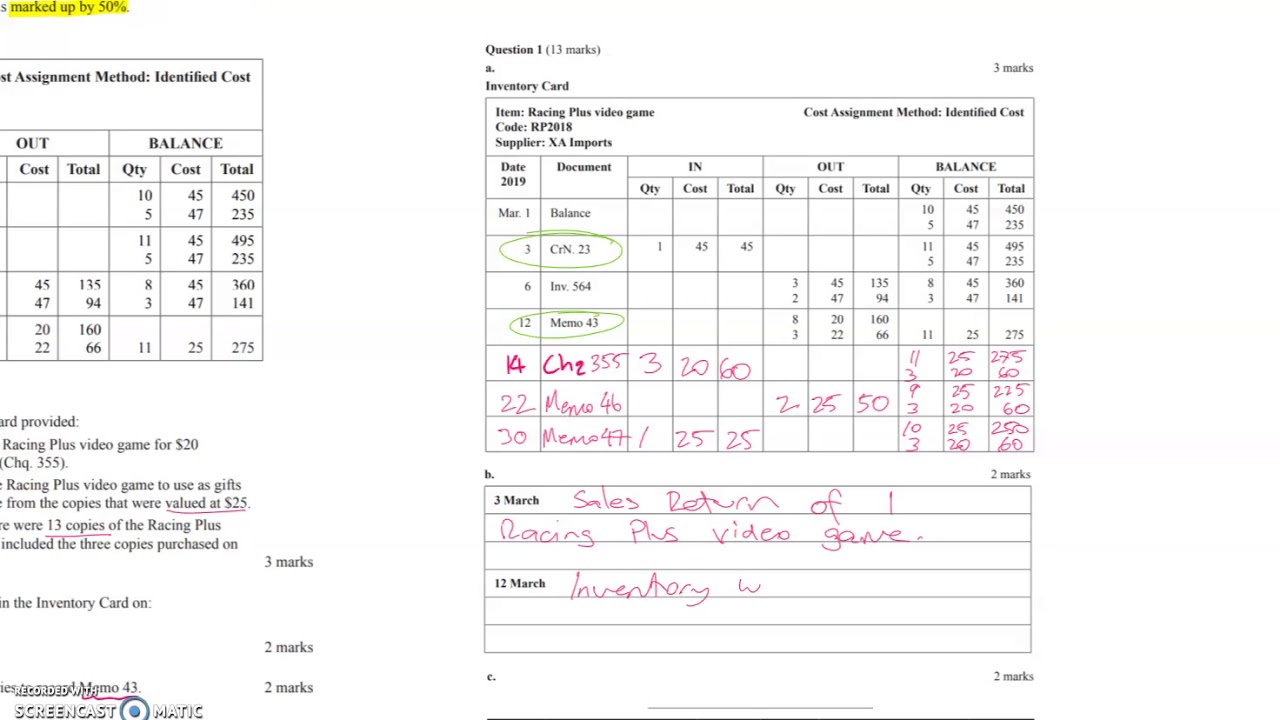 s marked up by 50%.
ost Assignment Method: Identified Cost
OUT BALANCE
Cost Total Qty Cost Total
10 45 450
5 47 235
11 45 495
5 47 235
45 135 8 45 360
47 94 3 47 141
20 160
22 66 11 25 275
ard provided:
Racing Plus video game for $20
(Chq. 355).
e Racing Plus video game to use as gifts
e from the copies that were valued at $25.
re were 13 copies of the Racing Plus
included the three copies purchased on
3 marks
in the Inventory Card on:
2 marks
Memo 43.
2 marks
RECORDED WITH
SCREENCAST MATIC
Question 1 (13 marks)
a. 3 marks
Inventory Card
Item: Racing Plus video game Cost Assignment Method: Identified Cost
Code: RP2018
Supplier: XA Imports
Date 2019 Document IN OUT BALANCE
Qty Cost Total Qty Cost Total Qty Cost Total
Mar. 1 Balance 10 45 450
5 47 235
3 CrN. 23 1 45 45 11 45 495
5 47 235
6 Inv. 564 3 45 135 8 45 360
2 47 94 3 47 141
12 Memo 43 8 20 160
3 22 66 11 25 275
14 Chq 355 3 20 60 11 25 275
3 20 60
22 Memo 46 2 25 50 9 25 225
3 20 60
30 Memo 47 1 25 25 10 25 250
3 20 60
b. 2 marks
3 March Sales Return of 1
Racing Plus video game.
12 March Inventory w
c. 2 marks